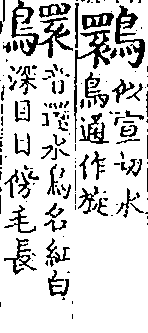 䴉
似宣切水
鳥通作旋
音水鳥名紅白
深目目傍毛長